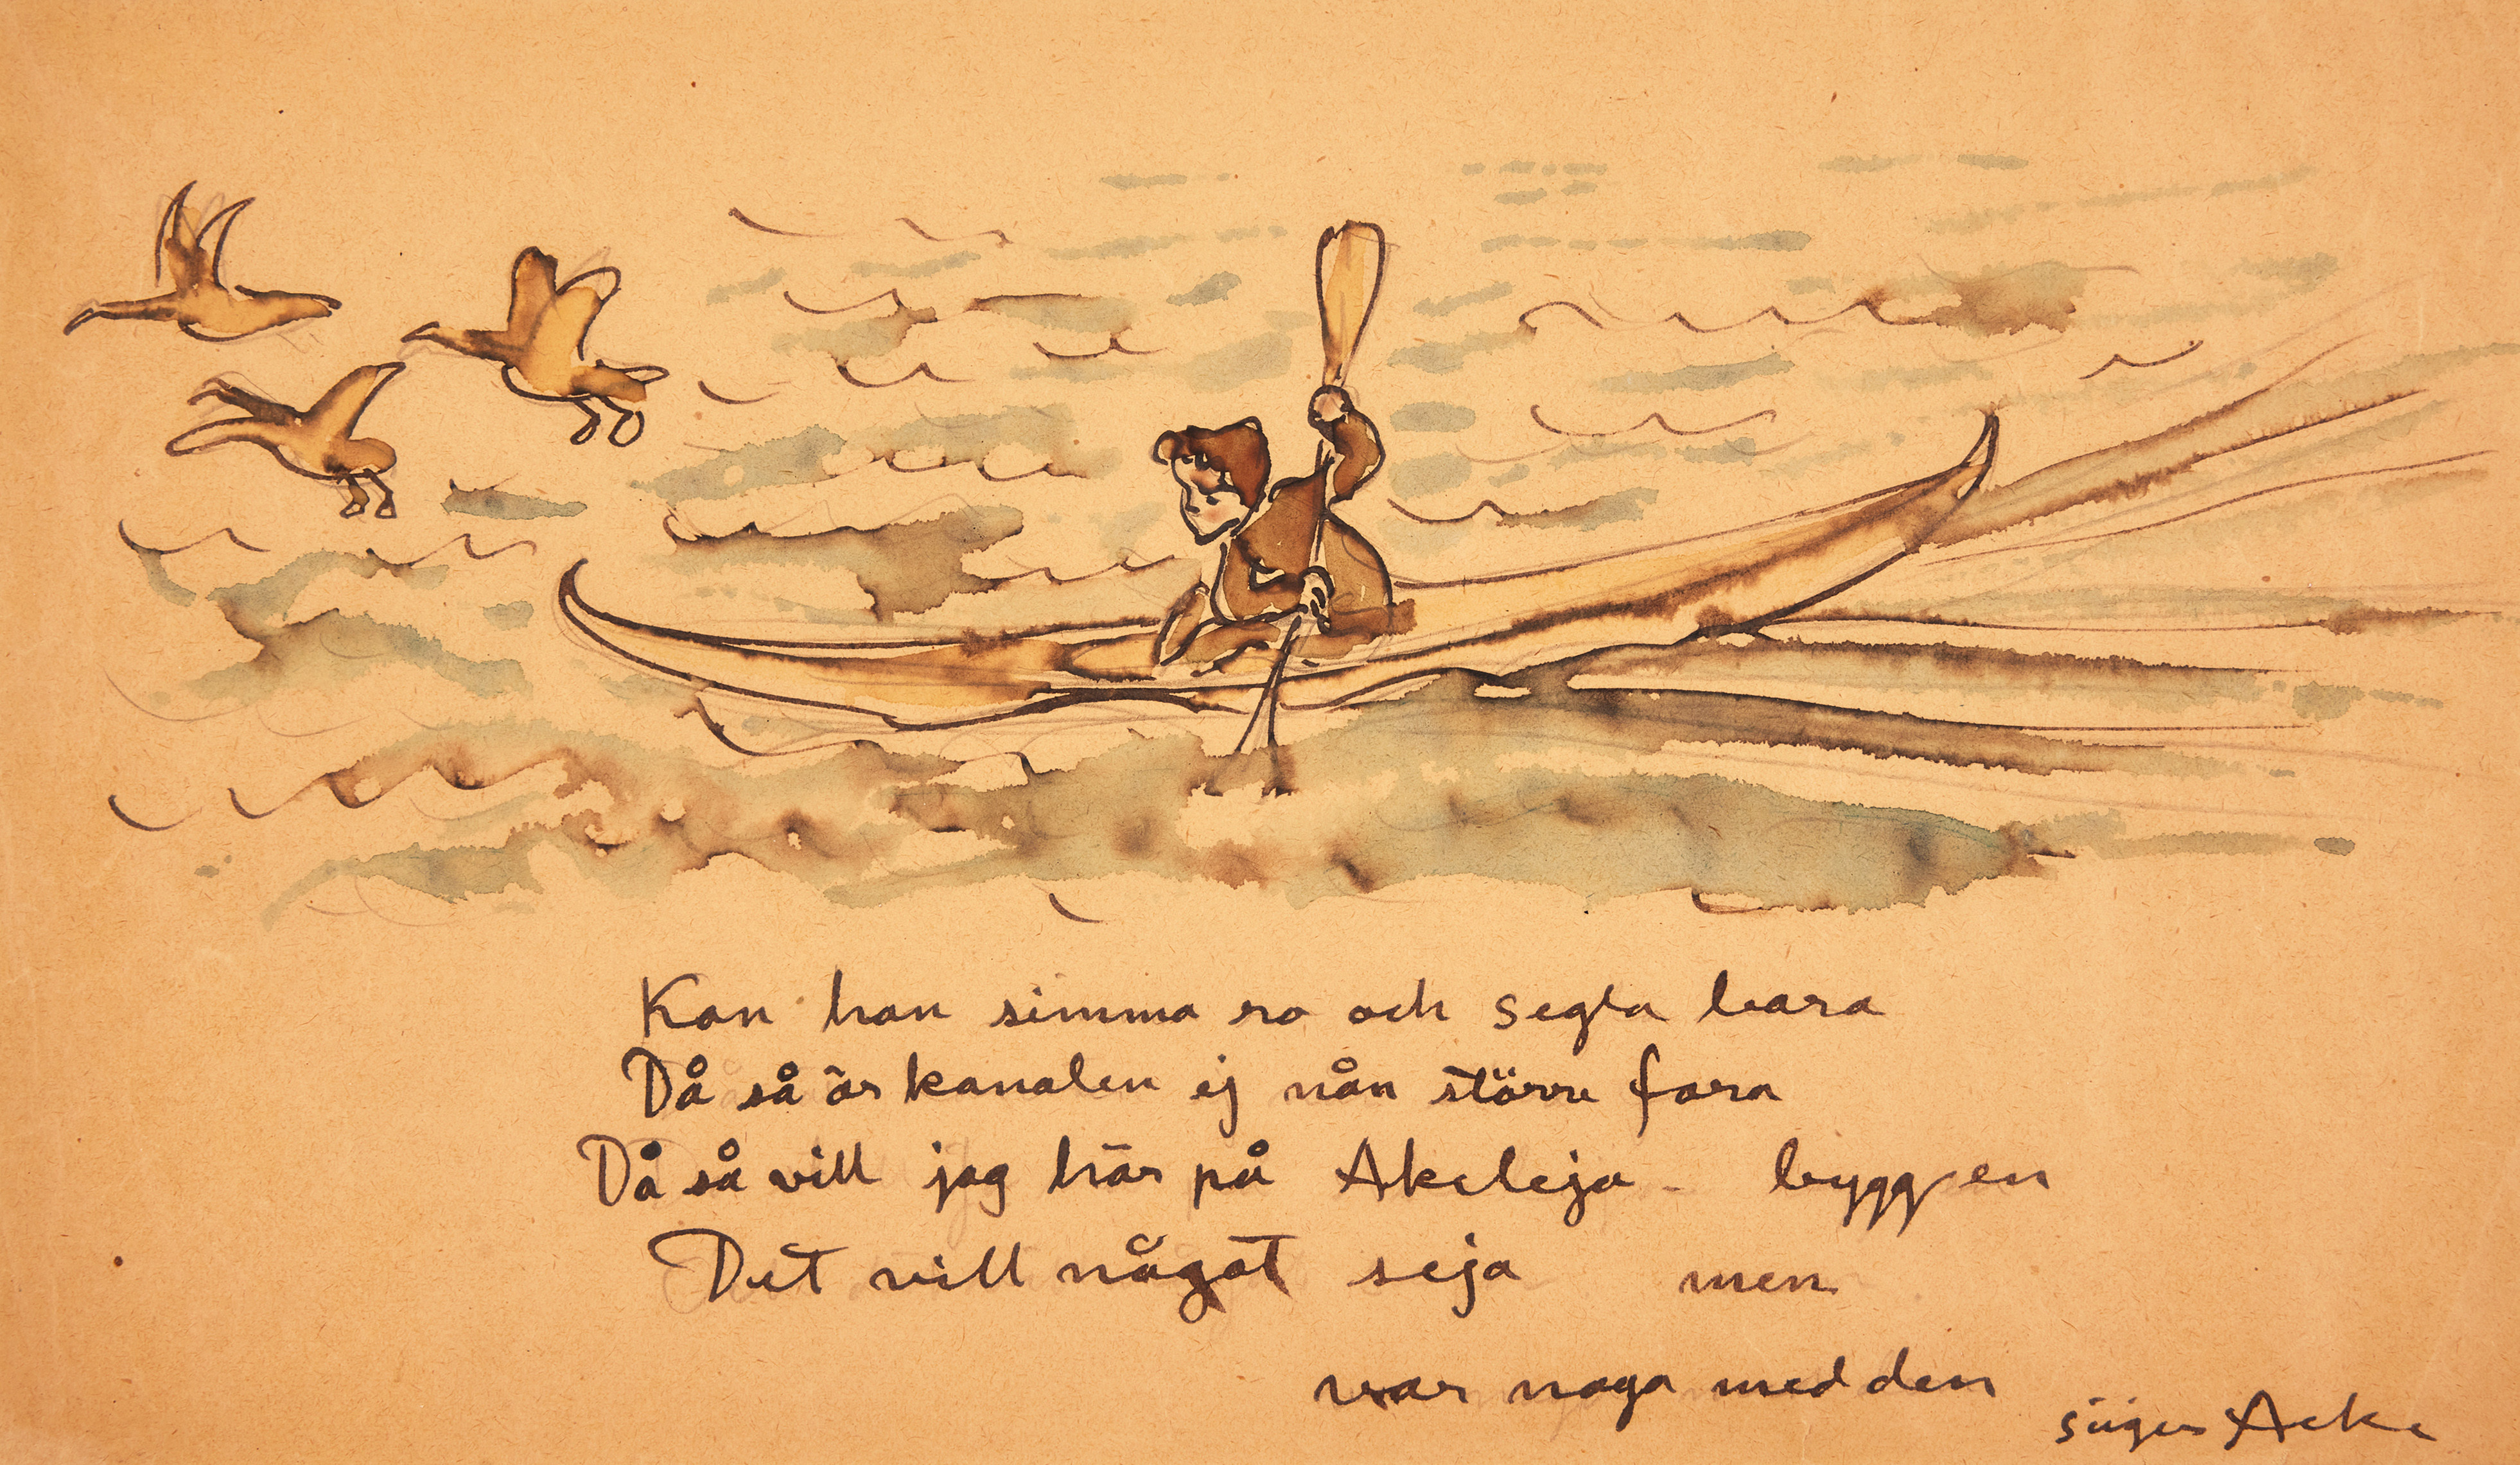 Kan han simma ro och segla bara
Då så är kanalen ej nån större fara
Då så vill jag här på Akeleja - byggen
Det vill något seja men
var noga med den
säger Acke